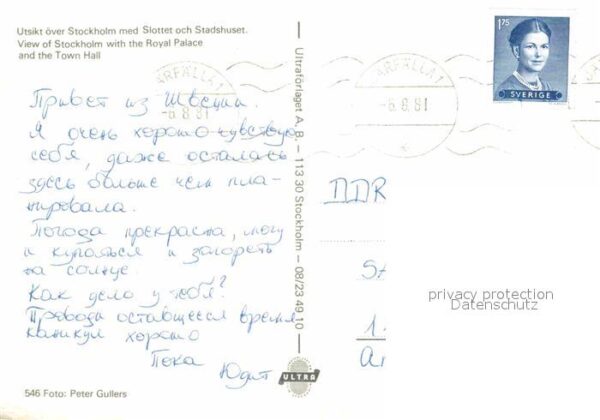 Utsikt över Stockholm med Slottet och Stadshuset.
View of Stockholm with the Royal Palace
and the Town Hall
Привет из Швеции.
Я очень хорошо чувствую
себя, даже осталась
здесь больше чем пла-
нировала.
Погода прекрасна, могу
и купаться и загореть
на солнце.
Как дело у тебя?
Проводи оставшееся время
каникул хорошо
Пока
Юдит
546 Foto: Peter Gullers
Ultraförlaget A.B. – 113 30 Stockholm – 08/23 49 10
ULTRA
JÄRFÄLLA 1
-6.8.81
JÄRFÄLLA 1
-6.8.81
175
SVERIGE
DDR
SA
1.
privacy protection
Datenschutz